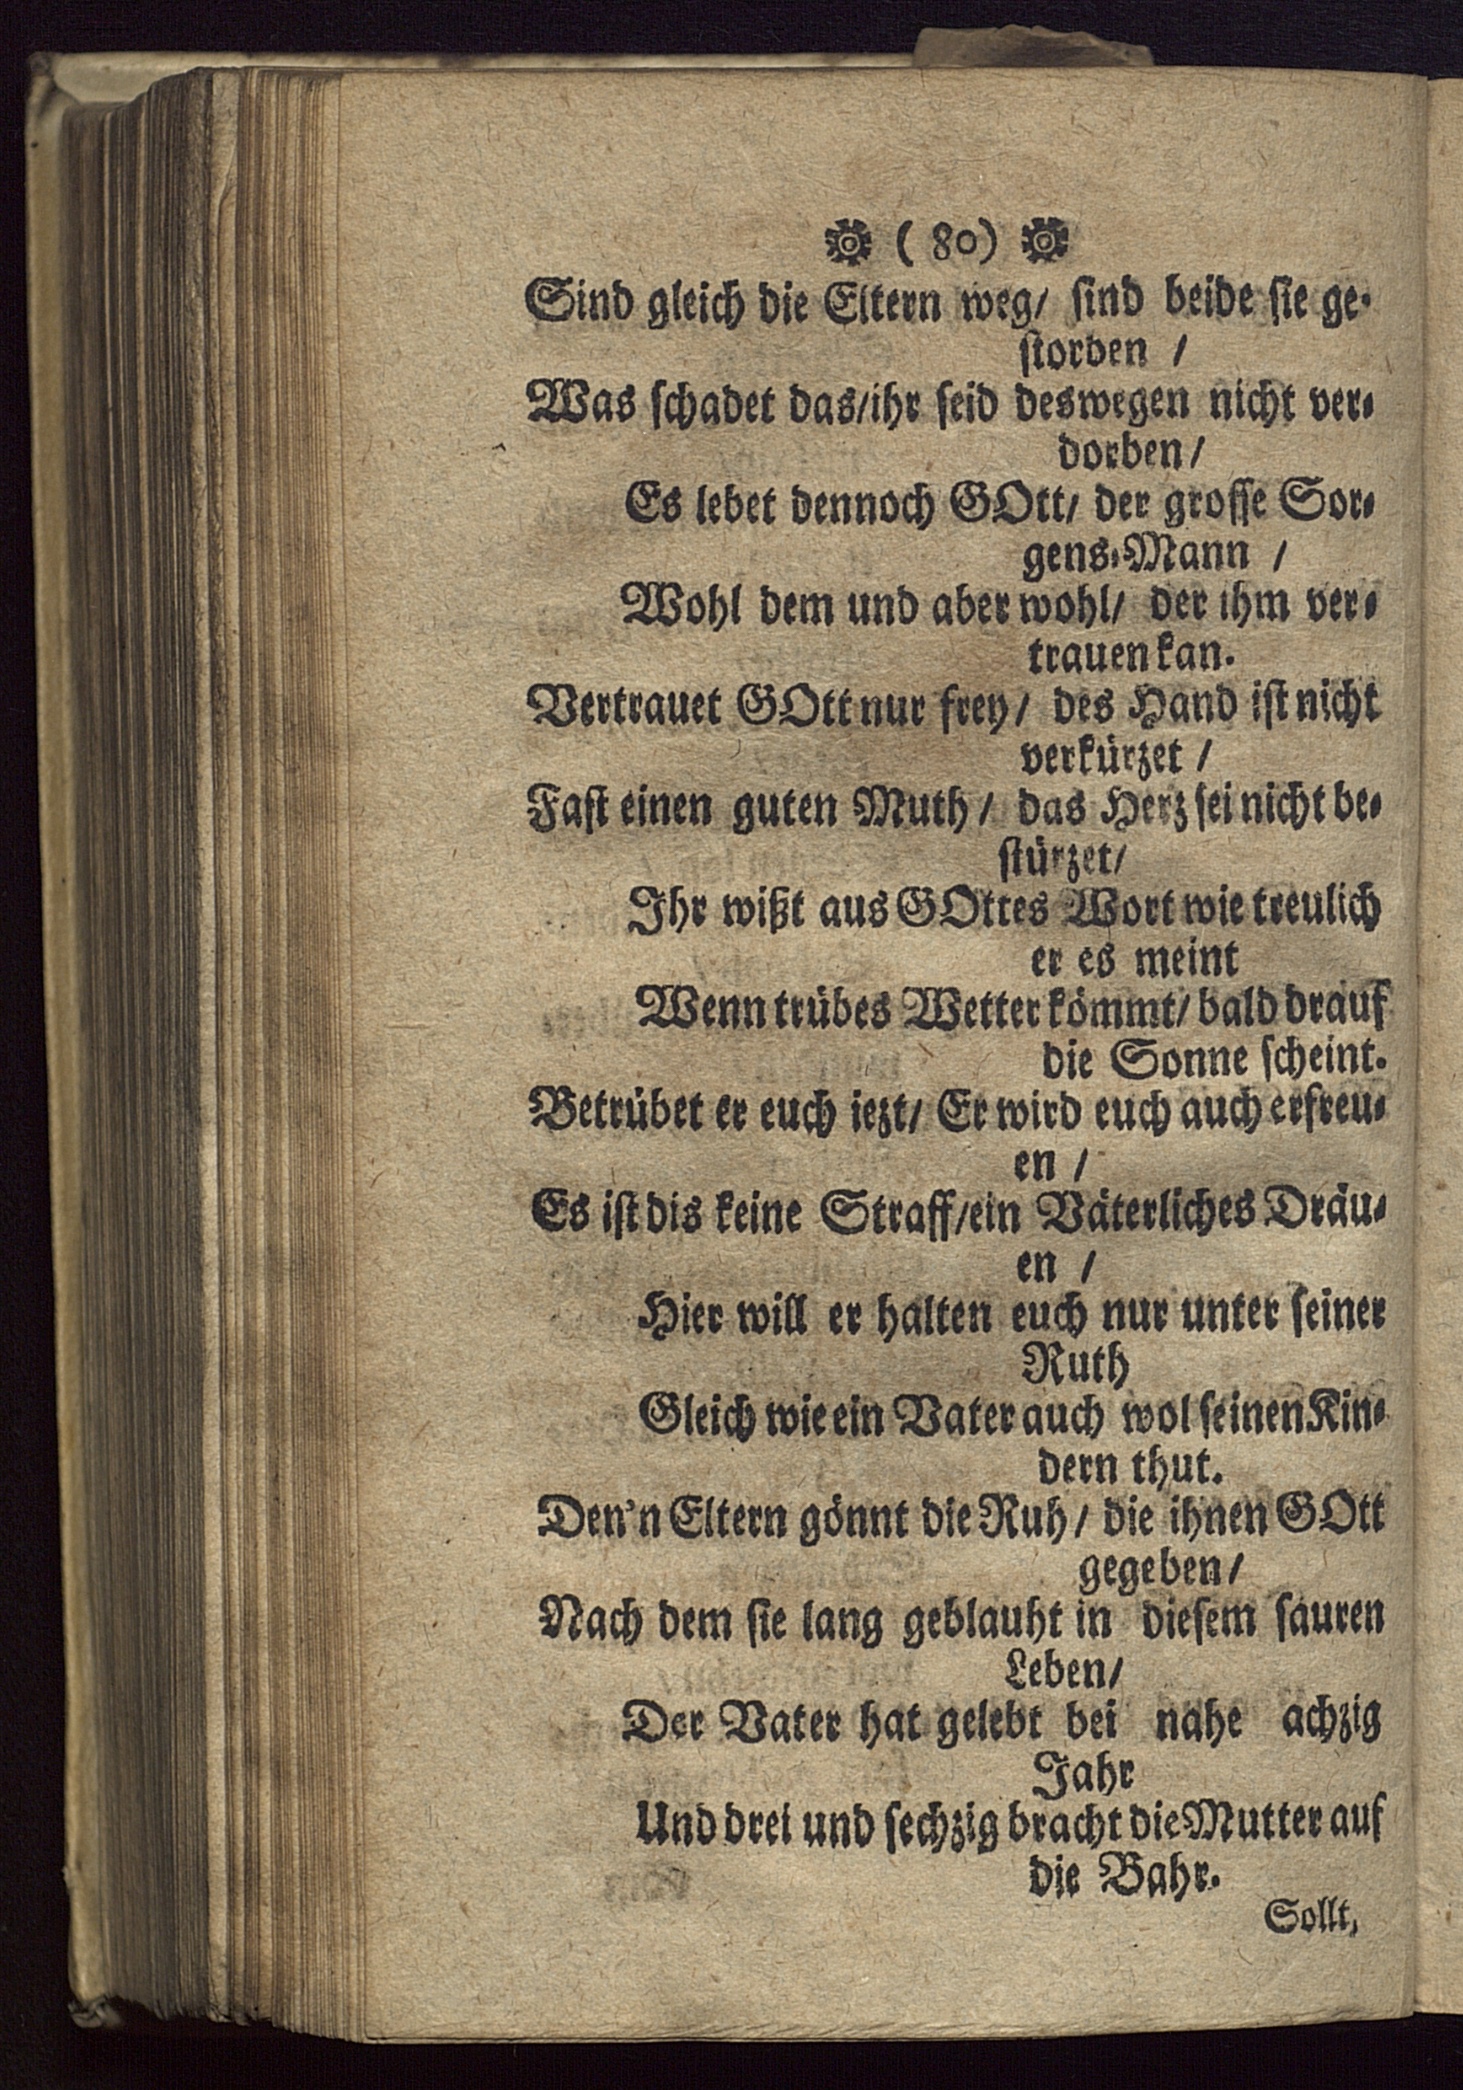 ( 80 )
Sind gleich die Eltern weg/ sind beide sie ge-
storben /
Was schadet das/ihr seid deswegen nicht ver-
dorben/
Es lebet dennoch GOtt/ der grosse Sor-
gens-Mann /
Wohl dem und aber wohl/ der ihm ver-
trauen kan.
Vertrauet GOtt nur frey/ des Hand ist nicht
verkürzet /
Fast einen guten Muth / das Herz sei nicht be-
stürzet/
Ihr wißt aus GOttes Wort wie treulich
er es meint
Wenn trübes Wetter kömmt/ bald drauf
die Sonne scheint.
Betrübet er euch iezt/ Er wird euch auch erfreu-
en /
Es ist dis keine Straff/ein Väterliches Dräu-
en /
Hier will er halten euch nur unter seiner
Ruth
Gleich wie ein Vater auch wol seinen Kin-
dern thut.
Den'n Eltern gönnt die Ruh/ die ihnen GOtt
gegeben/
Nach dem sie lang geblauht in diesem sauren
Leben/
Der Vater hat gelebt bei nahe achzig
Jahr
Und drei und sechzig bracht die Mutter auf
die Bahr.
Sollt,